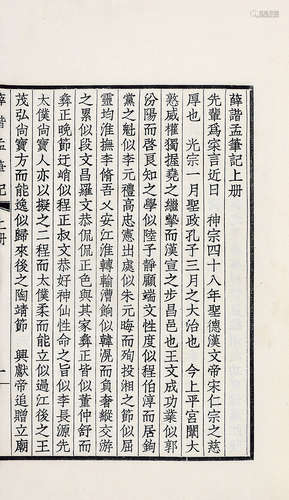 薛諧孟筆記上册
先輩爲家言近日 神宗四十八年聖德漢文帝宋仁宗之慈
厚也 光宗一月聖政孔子三月之大治也 今上平宮闈大
憝威權獨握堯之繼摯而漢宣之步昌邑也王文成功業似郭
汾陽而啓良知之學似陸子靜顧端文性度似程伯淳而居鉤
黨之魁似李元禮高忠憲出處似朱元晦而殉投湘之節似屈
靈均淮撫李脩吾乂安江淮轉輸漕餉似韓滉而負奢縱交游
之累似段文昌羅文恭侃侃正色與其家彝正皆似董仲舒而
彝正晚節迂峭似程正叔文恭好神仙性命之旨似李長源先
太僕尚寶方人亦以擬之二程而太僕柔而能立似過江後之王
茂弘尚寶方而能逸似歸來後之陶靖節 興獻帝追贈立廟
薛諧孟筆記 上册
一